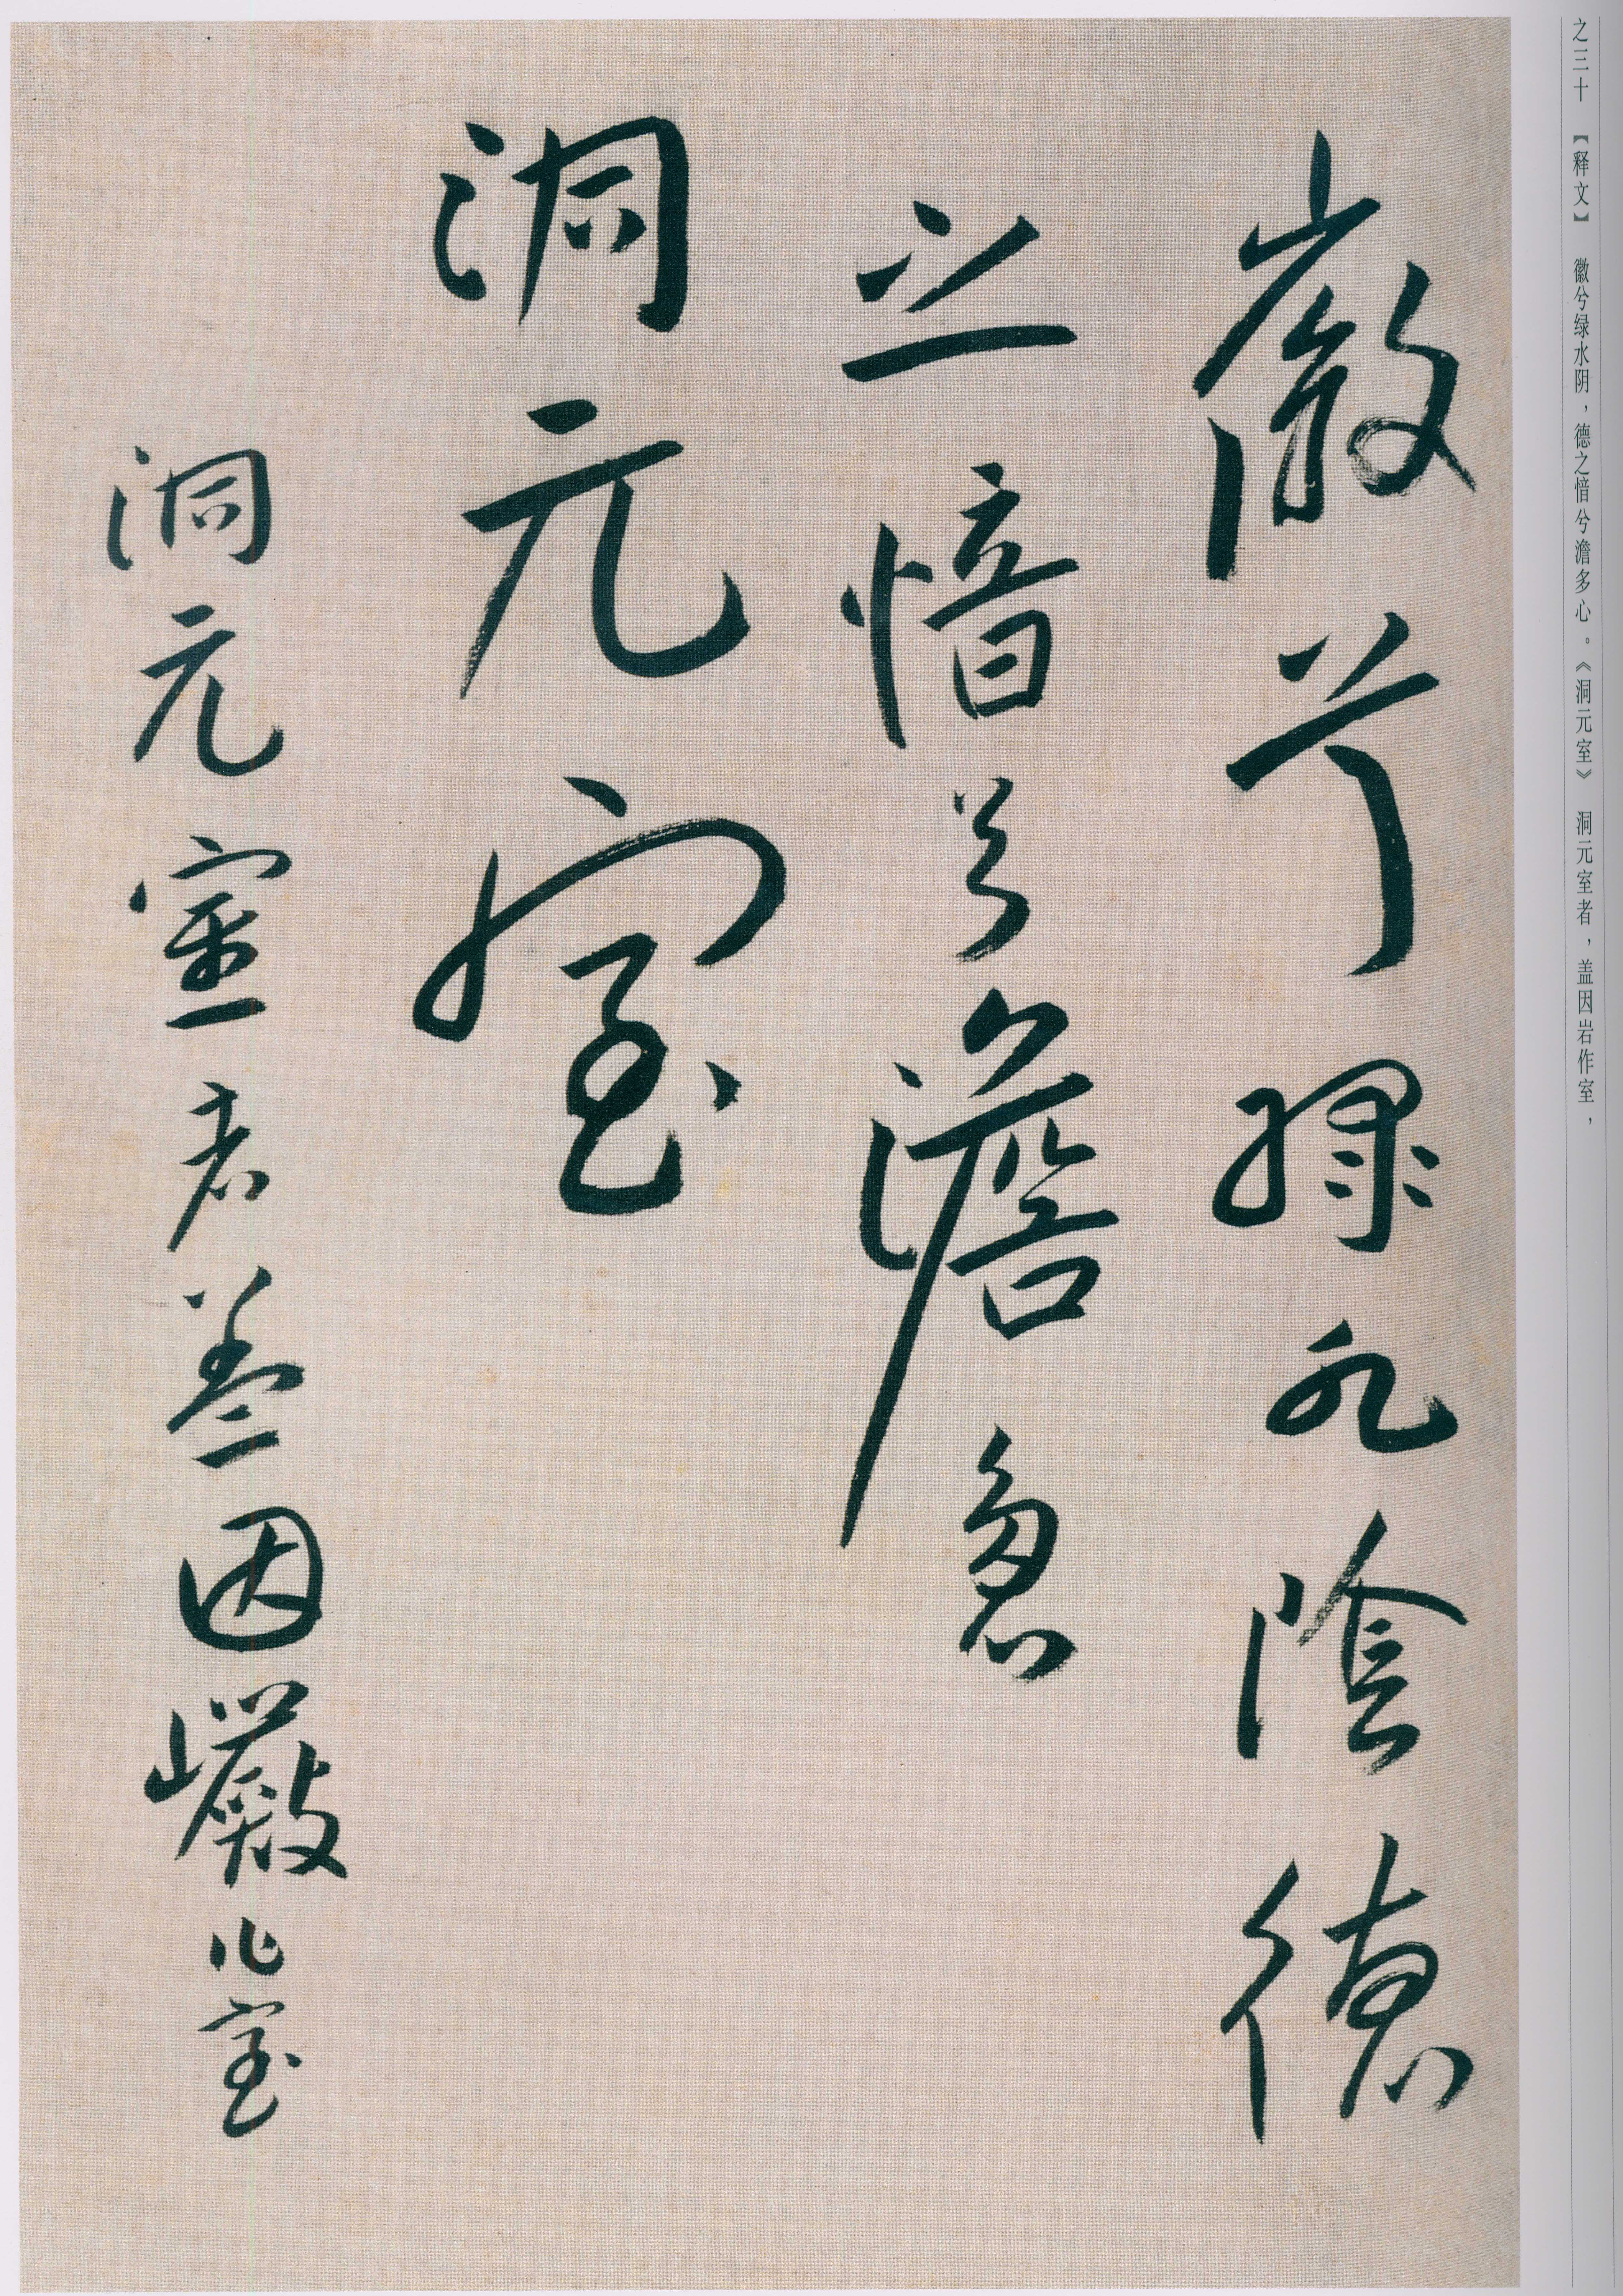 之三十 【释文】 徽兮绿水阴，德之愔兮澹多心。《洞元室》 洞元室者，盖因岩作室，
徽兮緑水陰德
之愔兮澹忽
洞元室
洞元室者蓋因巖作室